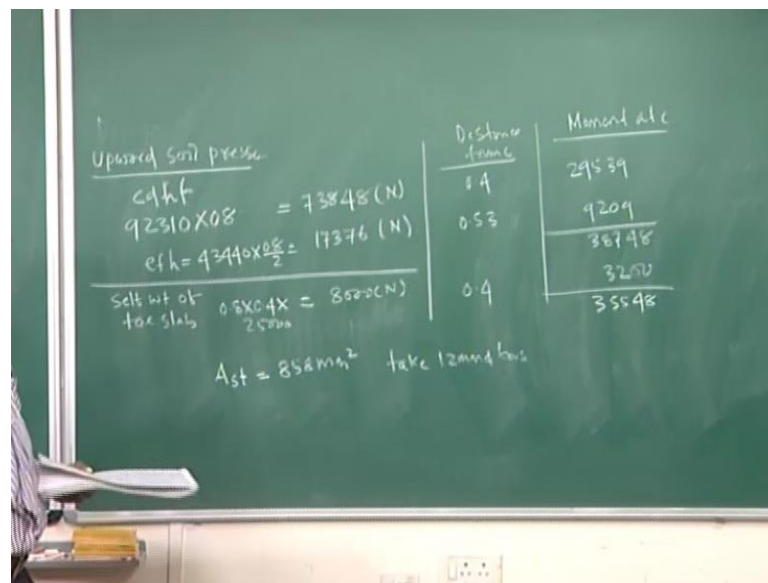 Upward soil pressure
Distance from c
Moment at c
cdhf
92310×08 = 73848 (N)
0.4
29539
efh = 43440×08/2 = 17376 (N)
0.53
9209
38748
Self wt of toe slab
0.8×0.4×25000 = 8000(N)
0.4
3200
35548
Ast = 858mm² take 12mmd bars